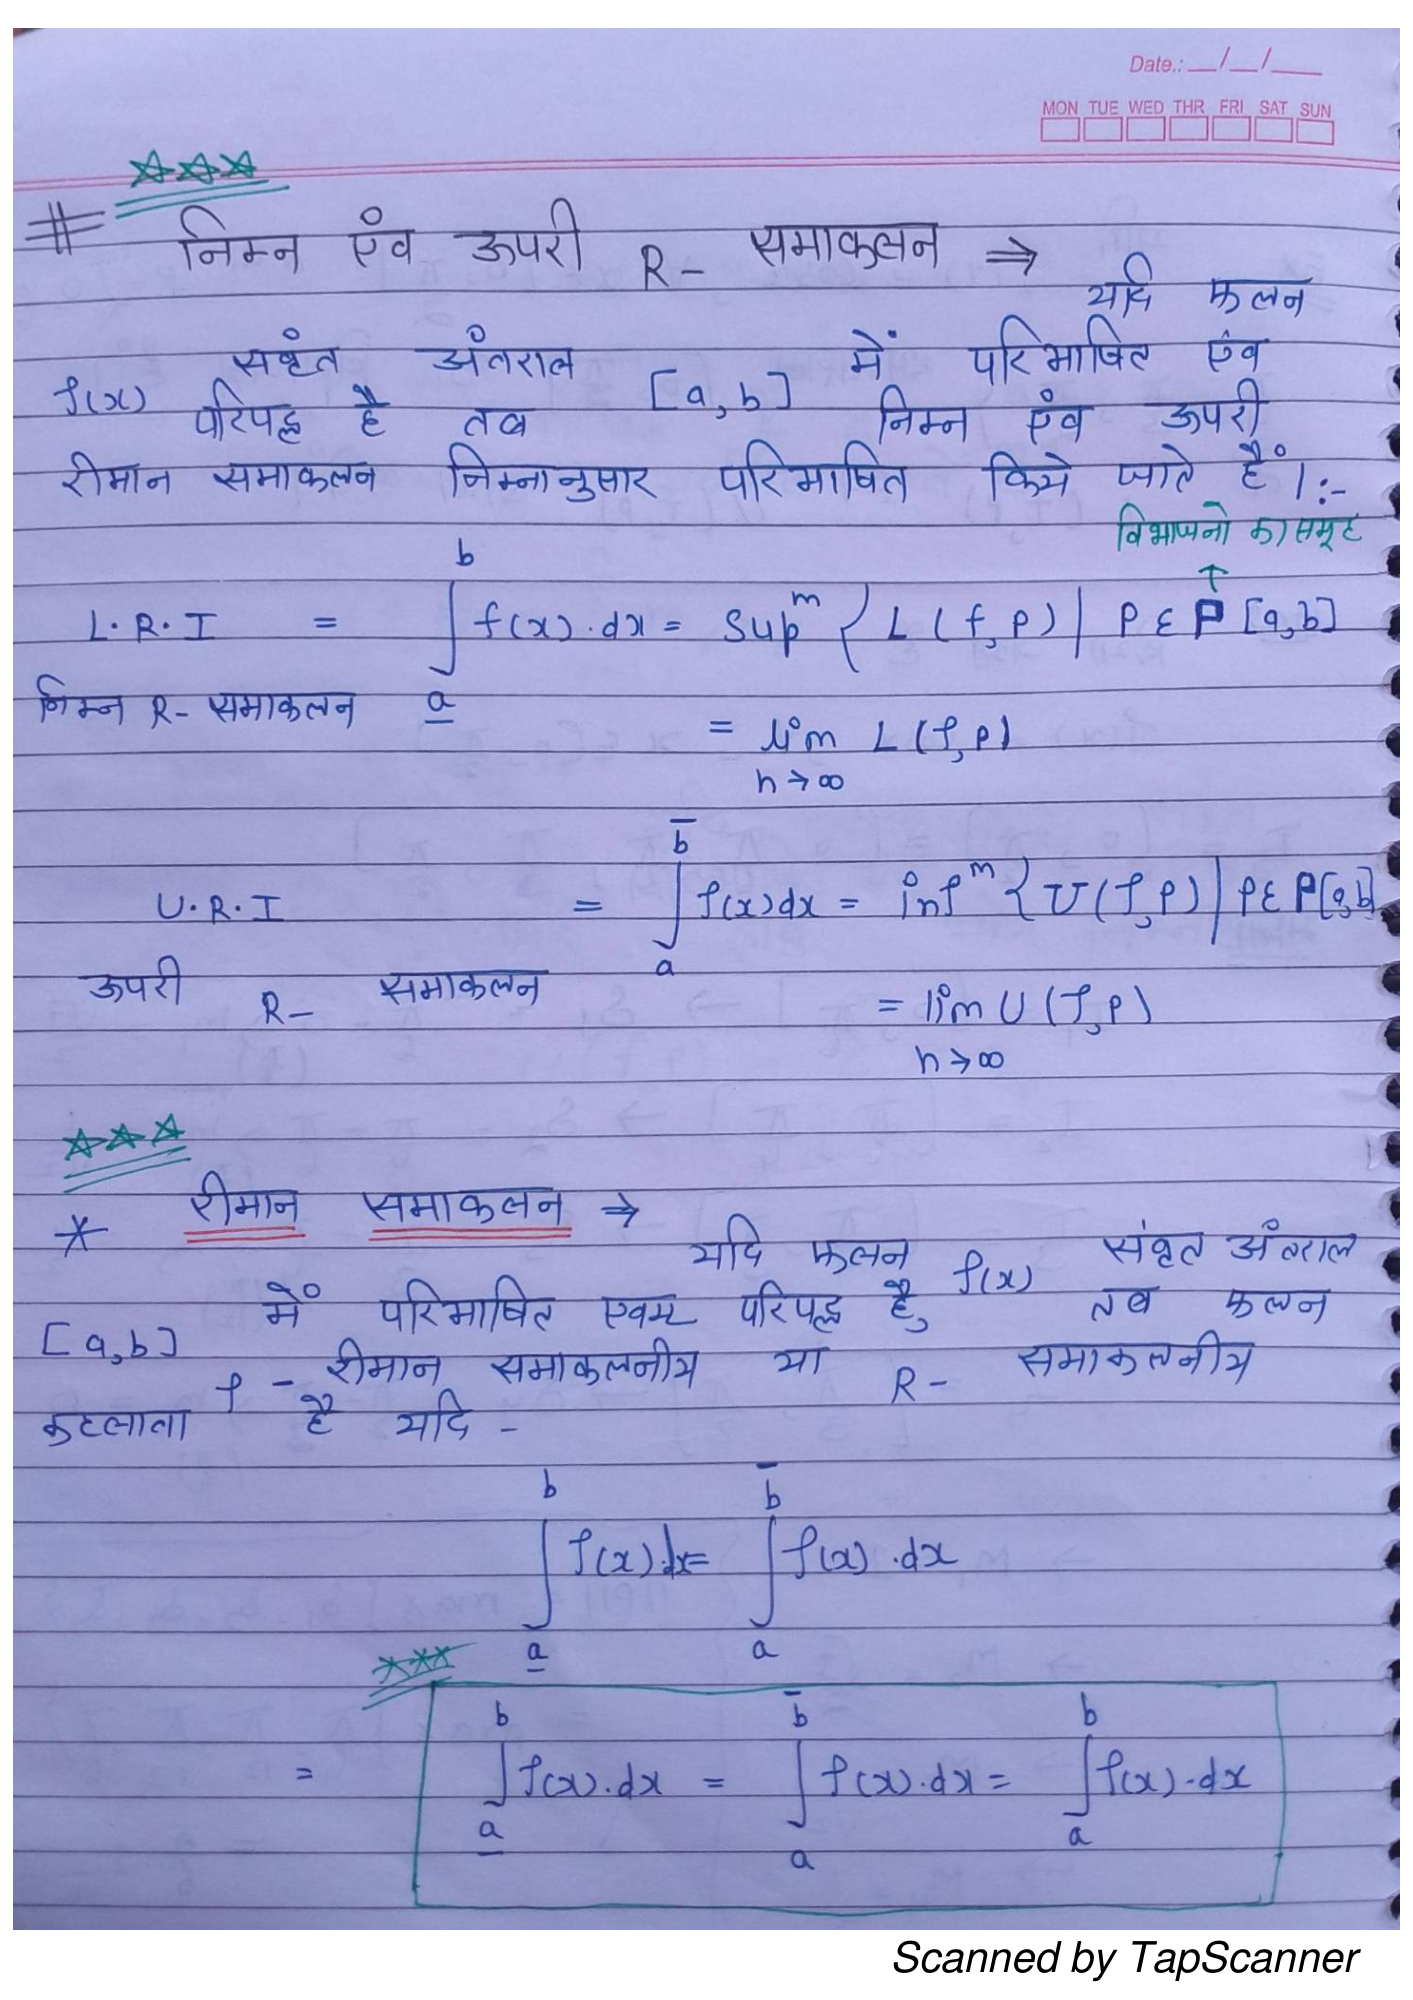 Date.: __/__/___
MON TUE WED THR FRI SAT SUN
# निम्न एंव ऊपरी R- समाकलन ⇒
यदि फलन
f(x) सवृंत अंतराल [a, b] में परिभाषित एंव
परिपद्ध है तब निम्न एंव ऊपरी
रीमान समाकलन निम्नानुसार परिभाषित किये जाते हैं।:-
विभाजनो का समूह
↑
L.R.I = ∫_a̲^b f(x).dx = Sup^m { L(f,P) | P ε P [a,b]
निम्न R- समाकलन
= lim L(f,P)
n→∞
U.R.I = ∫_a^b̅ f(x)dx = inf^m { U(f,P) | P ε P[a,b]
ऊपरी R- समाकलन
= lim U(f,P)
n→∞
* रीमान समाकलन ⇒
यदि फलन f(x) संवृत अंतराल
[a,b] में परिभाषित एवम परिपद्ध है, तब फलन
f - रीमान समाकलनीय या R- समाकलनीय
कहलाता है यदि -
∫_a̲^b f(x).dx = ∫_a^b̅ f(x).dx
= ∫_a̲^b f(x).dx = ∫_a^b̅ f(x).dx = ∫_a^b f(x).dx
Scanned by TapScanner